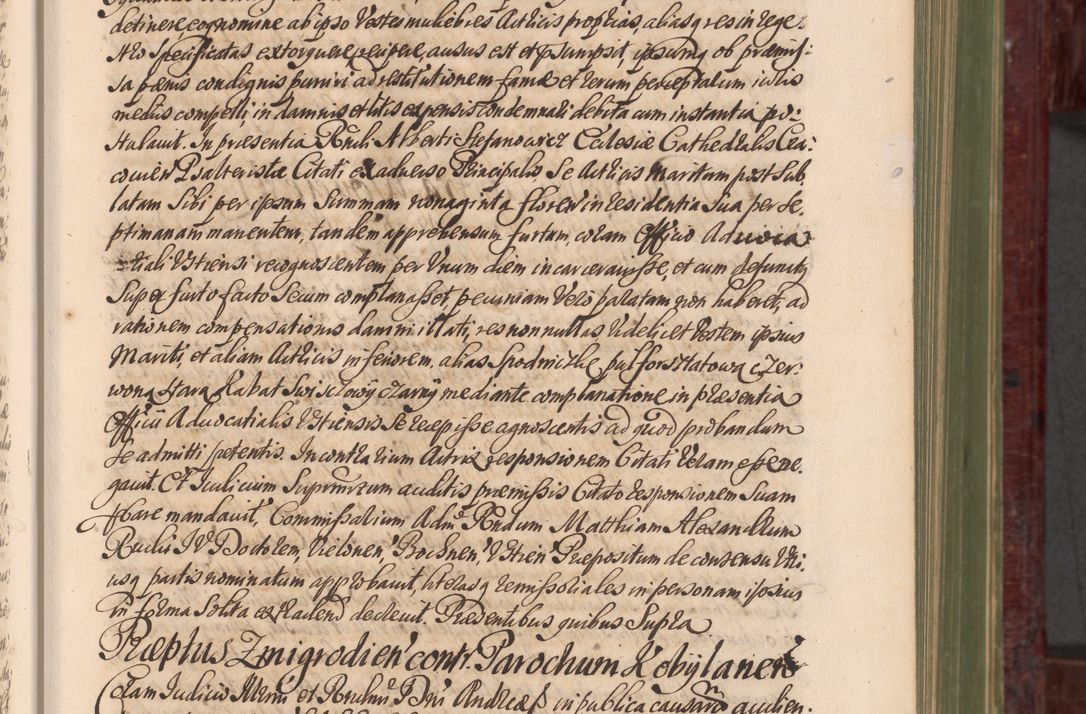 detinere, eoq nomine ab ipso Vestes muliebres Actricis proprias, aliasq res in rege-
stro Specificatas extorquere, recipere, ausus est et p̱sumpsit, ipsumq ob præmis:
sa pænis condignis puniri ad restitutionem famæ et rerum perceptalum iuris
medijs compelli, in damnis et litis expensis condemnari debita cum instantia po-
stulavit. In præsentia Rndi Alberti Stefanowicz Ecclesiæ Cathedralis Cra:
covien Psalteristæ Citati ex adverso Principalis Se Actricis Maritum post Sub
latam Sibi per ipsum Summam nonaginta floren in residentia Sua per Se-
ptimanam manentem, tandem apprehensum furtum, coram Officio Advoca
tiali Ustiensi recognoscentem, per Unum diem incarceravisse, et cum defuncto
Super furto facto Secum complanasset, pecuniam Vero paratam non haberet, ad
rationem compensationis damni illati, res nonnullas Videlicet Vestem ipsius
Mariti, et aliam Actricis inferiorem, alias Spodnickę pułforsztatową czer:
woną starą Kabat Swisłowÿ czarnÿ mediante complanatione in præsentia
Officii Advocatialis Ustiensis Se recepisse agnoscentis ad quod probandum
Se admitti petentis. In contrarium Actrix responsionem Citati Veram esse ne:
gavit. Et Iudicium Suprmrcum auditis præmissis Citato responsionem Suam
pbare mandavit, Commissarium Admd Rndum Matthiam Alexandrum
Rudis IV Doctorem, Vielonen' Bochnen' Ustien' Præpositum de consensu Utri:
usq partis nominatum approbavit, literasq remissoriales in personam ipsius
in forma Solita extradend decrevit. Præsentibus quibus Supra
Præptus Zmigrodien' contr. Parochum Kobylanen
Coram Iudicio Illrmi et Rndmi Dni Andreæ in publica causarum audien: